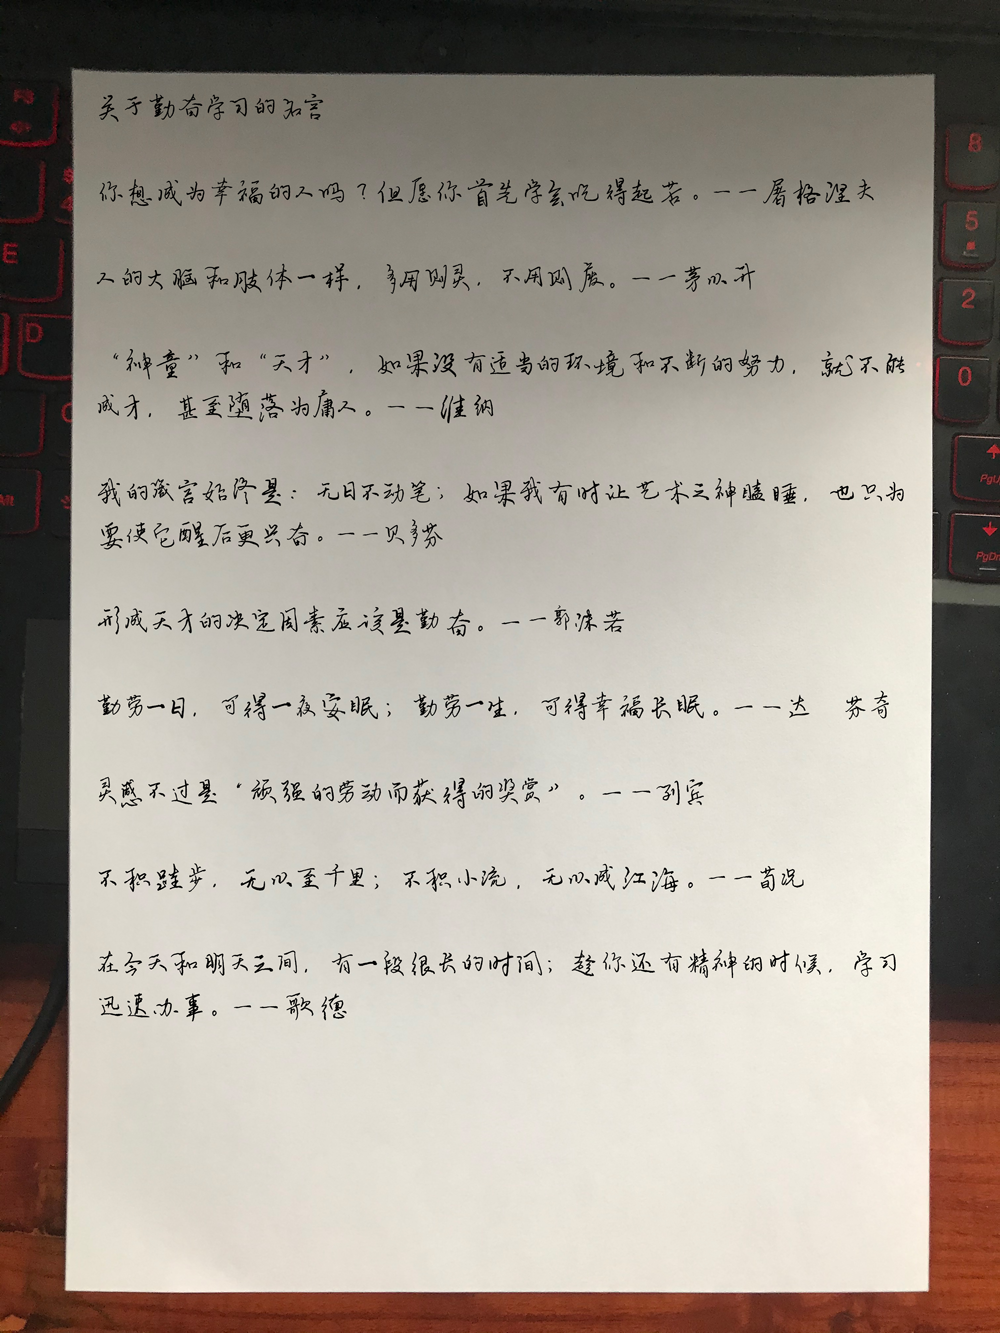 关于勤奋学习的名言
你想成为幸福的人吗？但愿你首先学会吃得起苦。——屠格涅夫
人的大脑和肢体一样，多用则灵，不用则废。——茅以升
“神童”和“天才”，如果没有适当的环境和不断的努力，就不能
成才，甚至堕落为庸人。——维纳
我的箴言始终是：无日不动笔；如果我有时让艺术之神瞌睡，也只为
要使它醒后更兴奋。——贝多芬
形成天才的决定因素应该是勤奋。——郭沫若
勤劳一日，可得一夜安眠；勤劳一生，可得幸福长眠。——达 芬奇
灵感不过是“顽强的劳动而获得的奖赏”。——列宾
不积跬步，无以至千里；不积小流，无以成江海。——荀况
在今天和明天之间，有一段很长的时间；趁你还有精神的时候，学习
迅速办事。——歌德
F8
E
D
8
5
2
0
PgDn